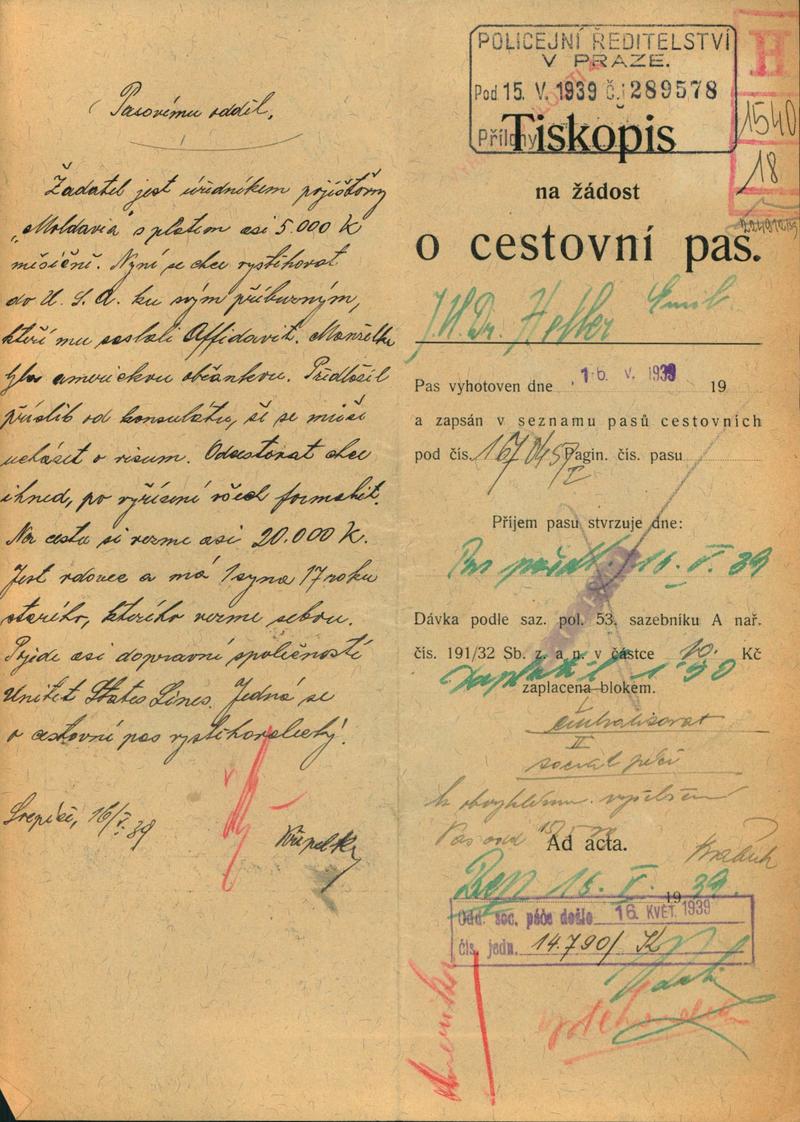 Pasovému odděl.
Žadatel jest úředníkem pojišťovny
„Moldavia“ s platem asi 5.000 K
měsíčně. Nyní se chce vystěhovat
do U. S. A. ku svým příbuzným,
kteří mu zaslali Affidavit. Manželka
byla americkou občankou. Předložil
příslib od konsulátu, že se může
ucházet o visum. Odcestovat chce
ihned, po vyřízení všech formalit.
Na cestu si vezme asi 20.000 K.
Jest vdovec a má 1 syna 17 roků
starého, kterého vezme sebou.
Pojede asi dopravní společností
Unitet States Lines. Jedná se
o cestovní pas vystěhovalecký.
16/V. 39
POLICEJNÍ ŘEDITELSTVÍ
V PRAZE.
Pod 15. V. 1939 č.: 289578
Přílohy
H
1540
18
Tiskopis
na žádost
o cestovní pas.
J.U.Dr. Heller Emil
Pas vyhotoven dne 16. V. 1939 19
a zapsán v seznamu pasů cestovních
pod čís. Pagin. čís. pasu
Příjem pasu stvrzuje dne:
16. V. 39
Dávka podle saz. pol. 53. sazebníku A nař.
čís. 191/32 Sb. z. a n. v částce 10. Kč
zaplacena blokem.
II
Ad acta.
16. V. 19 39.
Odd. soc. péče došlo 16. KVĚT. 1939
čís. jedn. 14.790/
Amerika